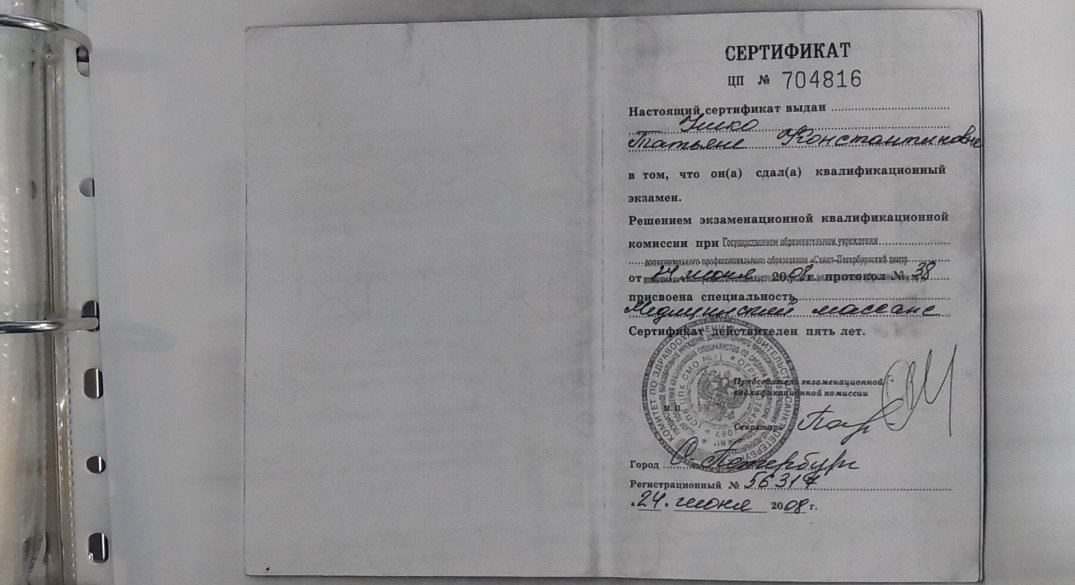 СЕРТИФИКАТ
ЦП № 704816
Настоящий сертификат выдан
Татьяне Константиновне
в том, что он(а) сдал(а) квалификационный
экзамен.
Решением экзаменационной квалификационной
комиссии при Государственном образовательном учреждении
дополнительного профессионального образования «Санкт-Петербургский центр
от 24 июня 2008 г. протокол № 38
присвоена специальность
Медицинский массаж
Сертификат действителен пять лет.
Председатель экзаменационной
квалификационной комиссии
М. П.
Секретарь
Город С-Петербург
Регистрационный № 56317
24 июня 2008 г.